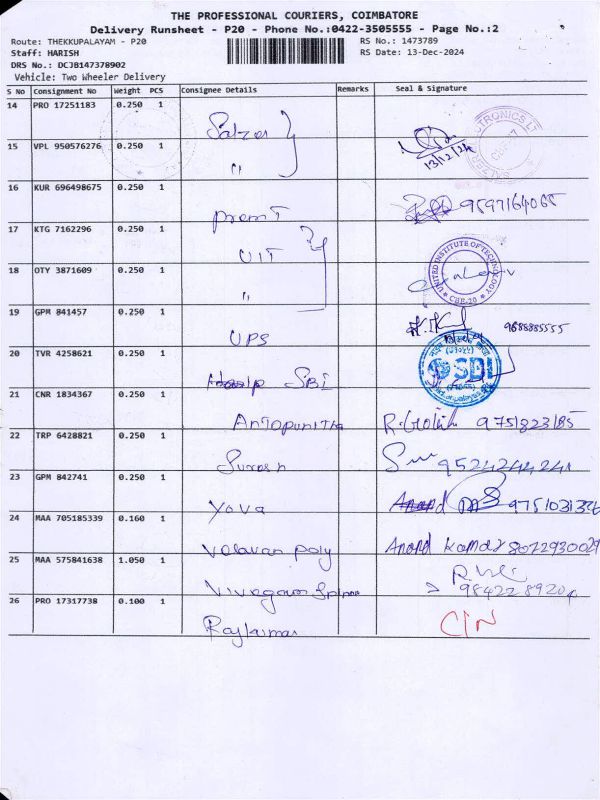 THE PROFESSIONAL COURIERS, COIMBATORE
Delivery Runsheet - P20 - Phone No.:0422-3505555 - Page No.:2
Route: THEKKUPALAYAM - P20 RS No.: 1473789
Staff: HARISH RS Date: 13-Dec-2024
DRS No.: DCJB147378902
Vehicle: Two Wheeler Delivery
S No Consignment No Weight PCS Consignee Details Remarks Seal & Signature
14 PRO 17251183 0.250 1 Salzer
13/12/24
15 VPL 950576276 0.250 1 "
16 KUR 696498675 0.250 1 Prem T 9597164065
17 KTG 7162296 0.250 1 UIT
UNITED INSTITUTE OF TECHNOLOGY
CBE-20
18 OTY 3871609 0.250 1 "
19 GPM 841457 0.250 1 UPS 9688885555
20 TVR 4258621 0.250 1 SBI
SBI
21 CNR 1834367 0.250 1 Antopunitha 9751823185
22 TRP 6428821 0.250 1 Suresh 9524244241
23 GPM 842741 0.250 1 Yova
24 MAA 705185339 0.160 1 Velavan poly Anand Kumar
25 MAA 575841638 1.050 1
26 PRO 17317738 0.100 1 Rajkumar